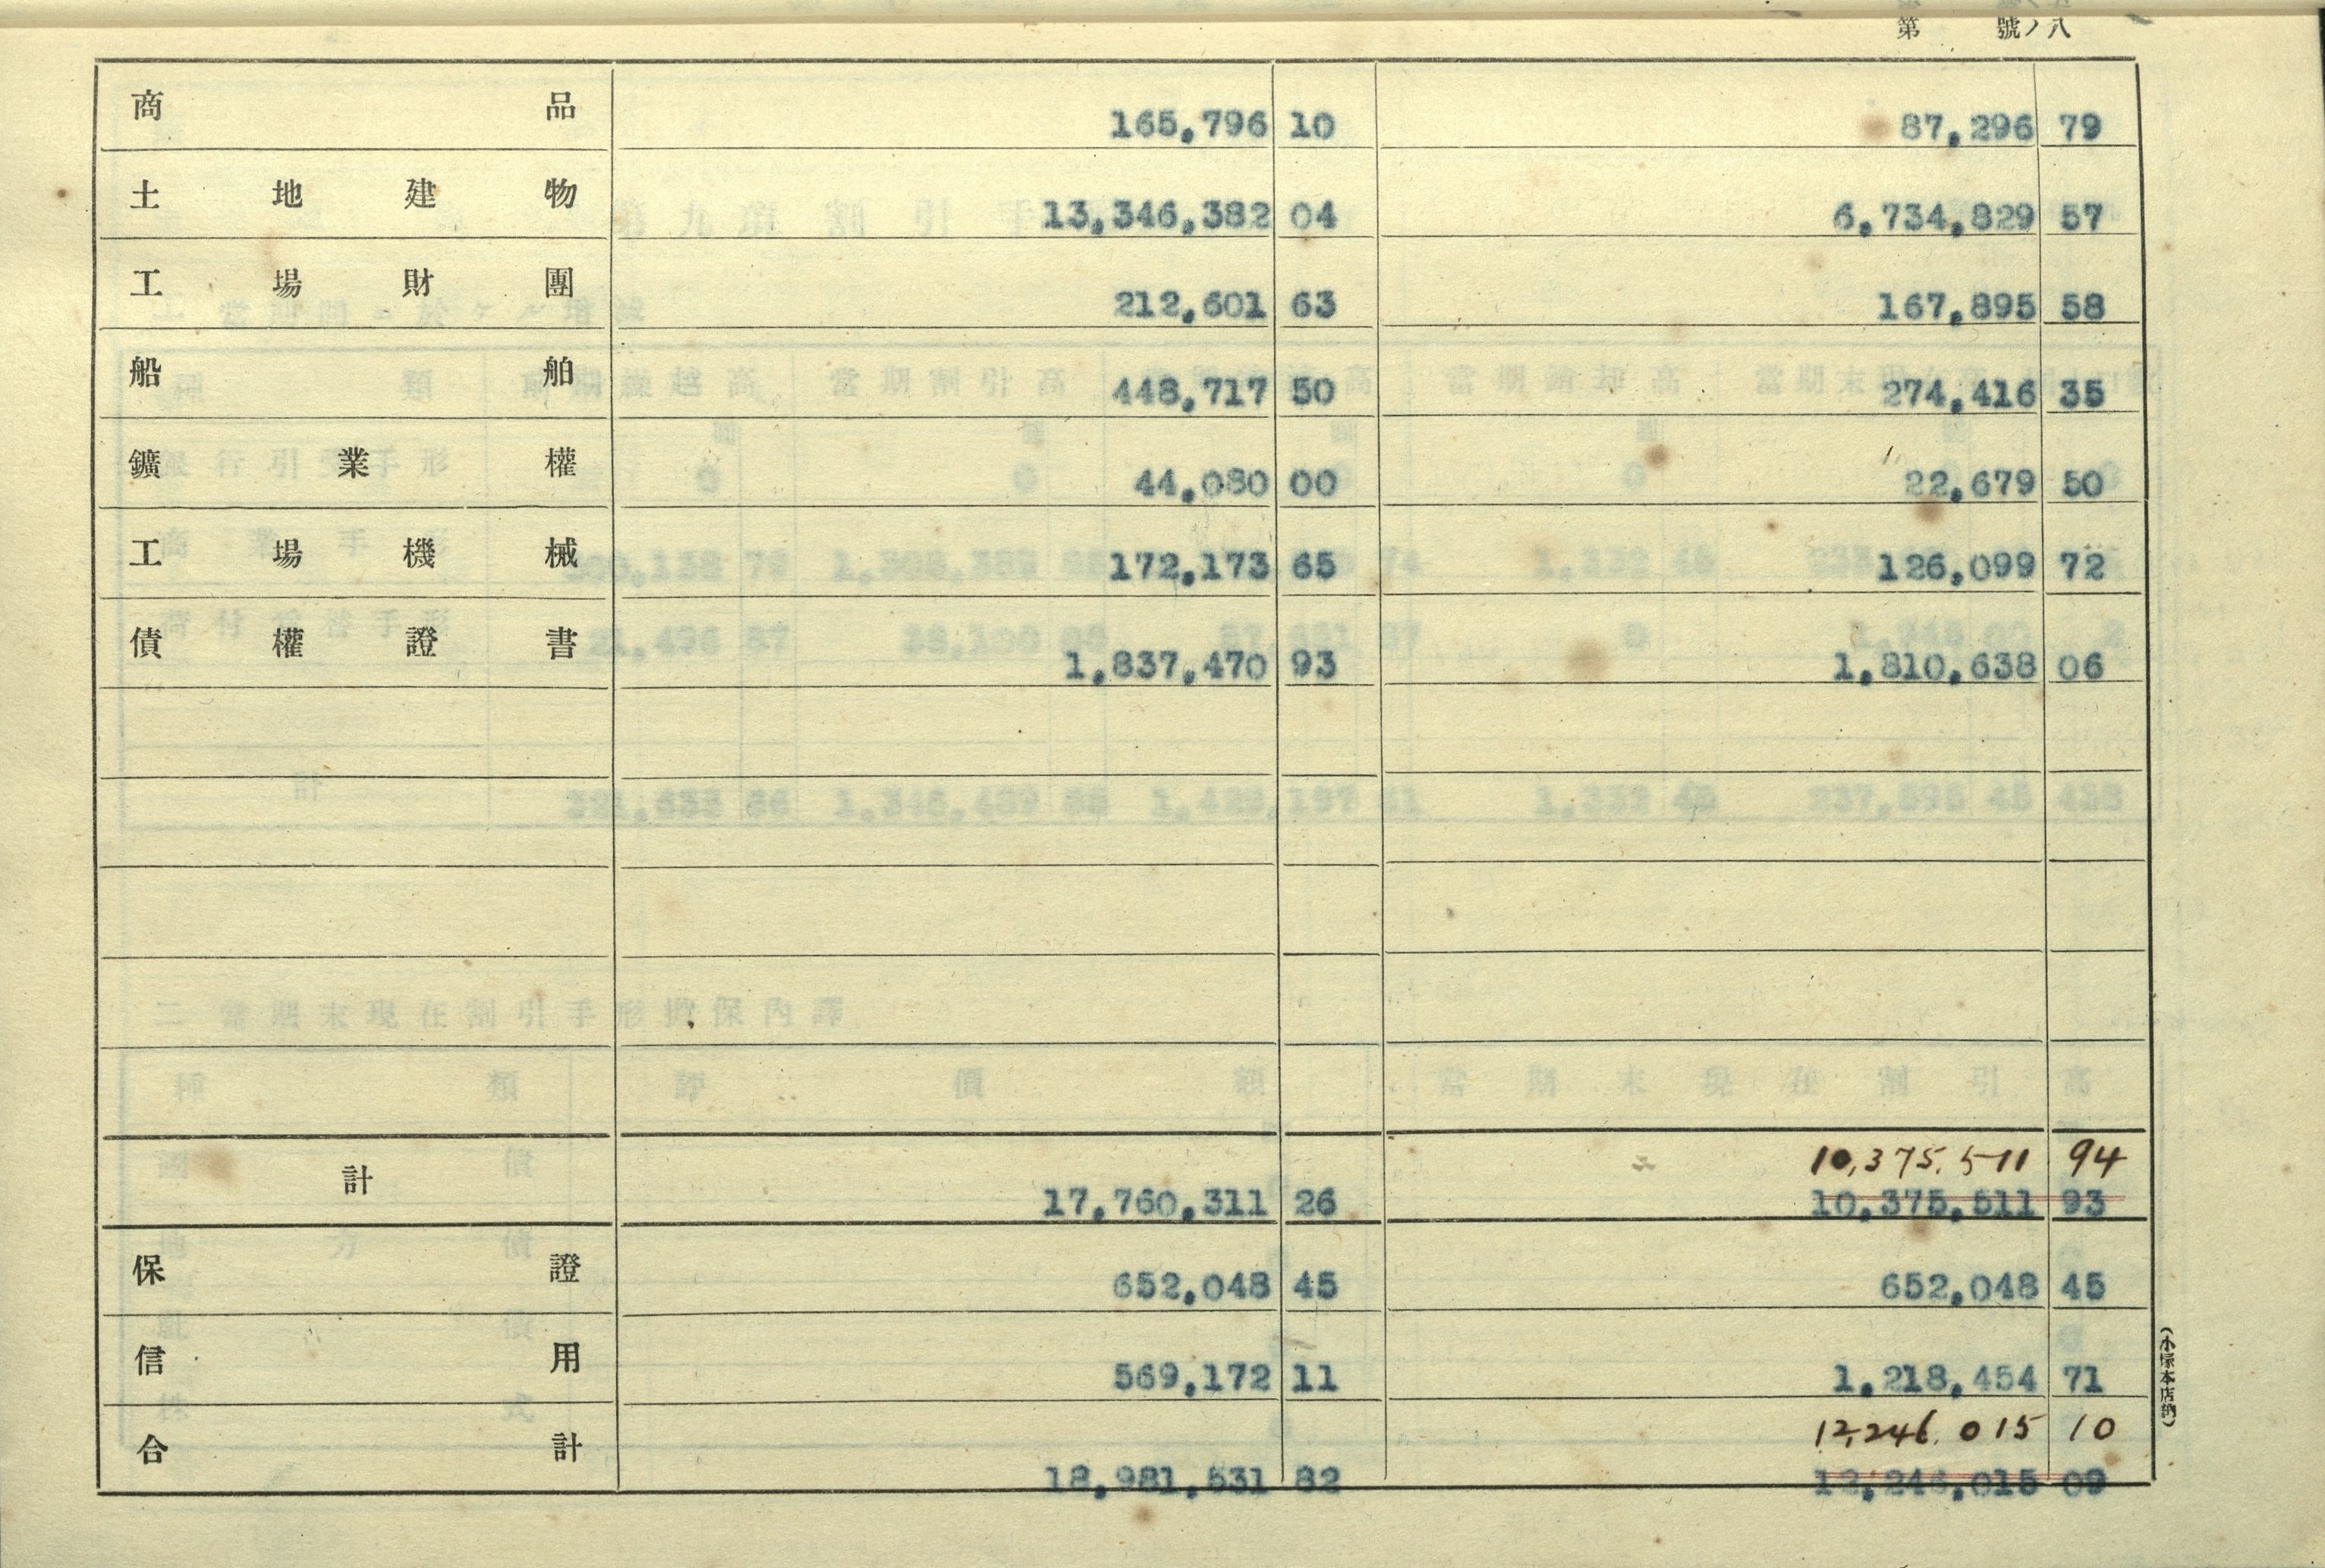 第 號ノ八
商品 165,796 10 87,296 79
土地建物 13,346,382 04 6,734,829 57
工場財團 212,601 63 167,895 58
船舶 448,717 50 274,416 35
鑛業權 44,080 00 22,679 50
工場機械 172,173 65 126,099 72
債權證書 1,837,470 93 1,810,638 06
10,375,511 94
計 17,760,311 26 10,375,511 93
保證 652,048 45 652,048 45
信用 569,172 11 1,218,454 71
12,246,015 10
合計 18,981,531 82 12,246,015 09
(小塚本店納)